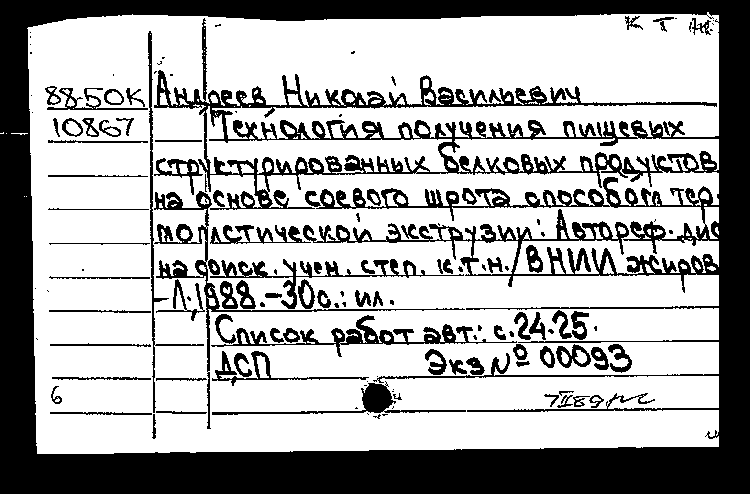 К Т
88-50К Андреев Николай Васильевич
10867 Технология получения пищевых
структурированных белковых продуктов
на основе соевого шрота способом тер-
мопластической экструзии: Автореф. дис
на соиск. учен. степ. к.т.н./ВНИИ жиров
-Л.,1988.-30с.: ил.
Список работ авт.: с.24-25.
ДСП Экз № 00093
6